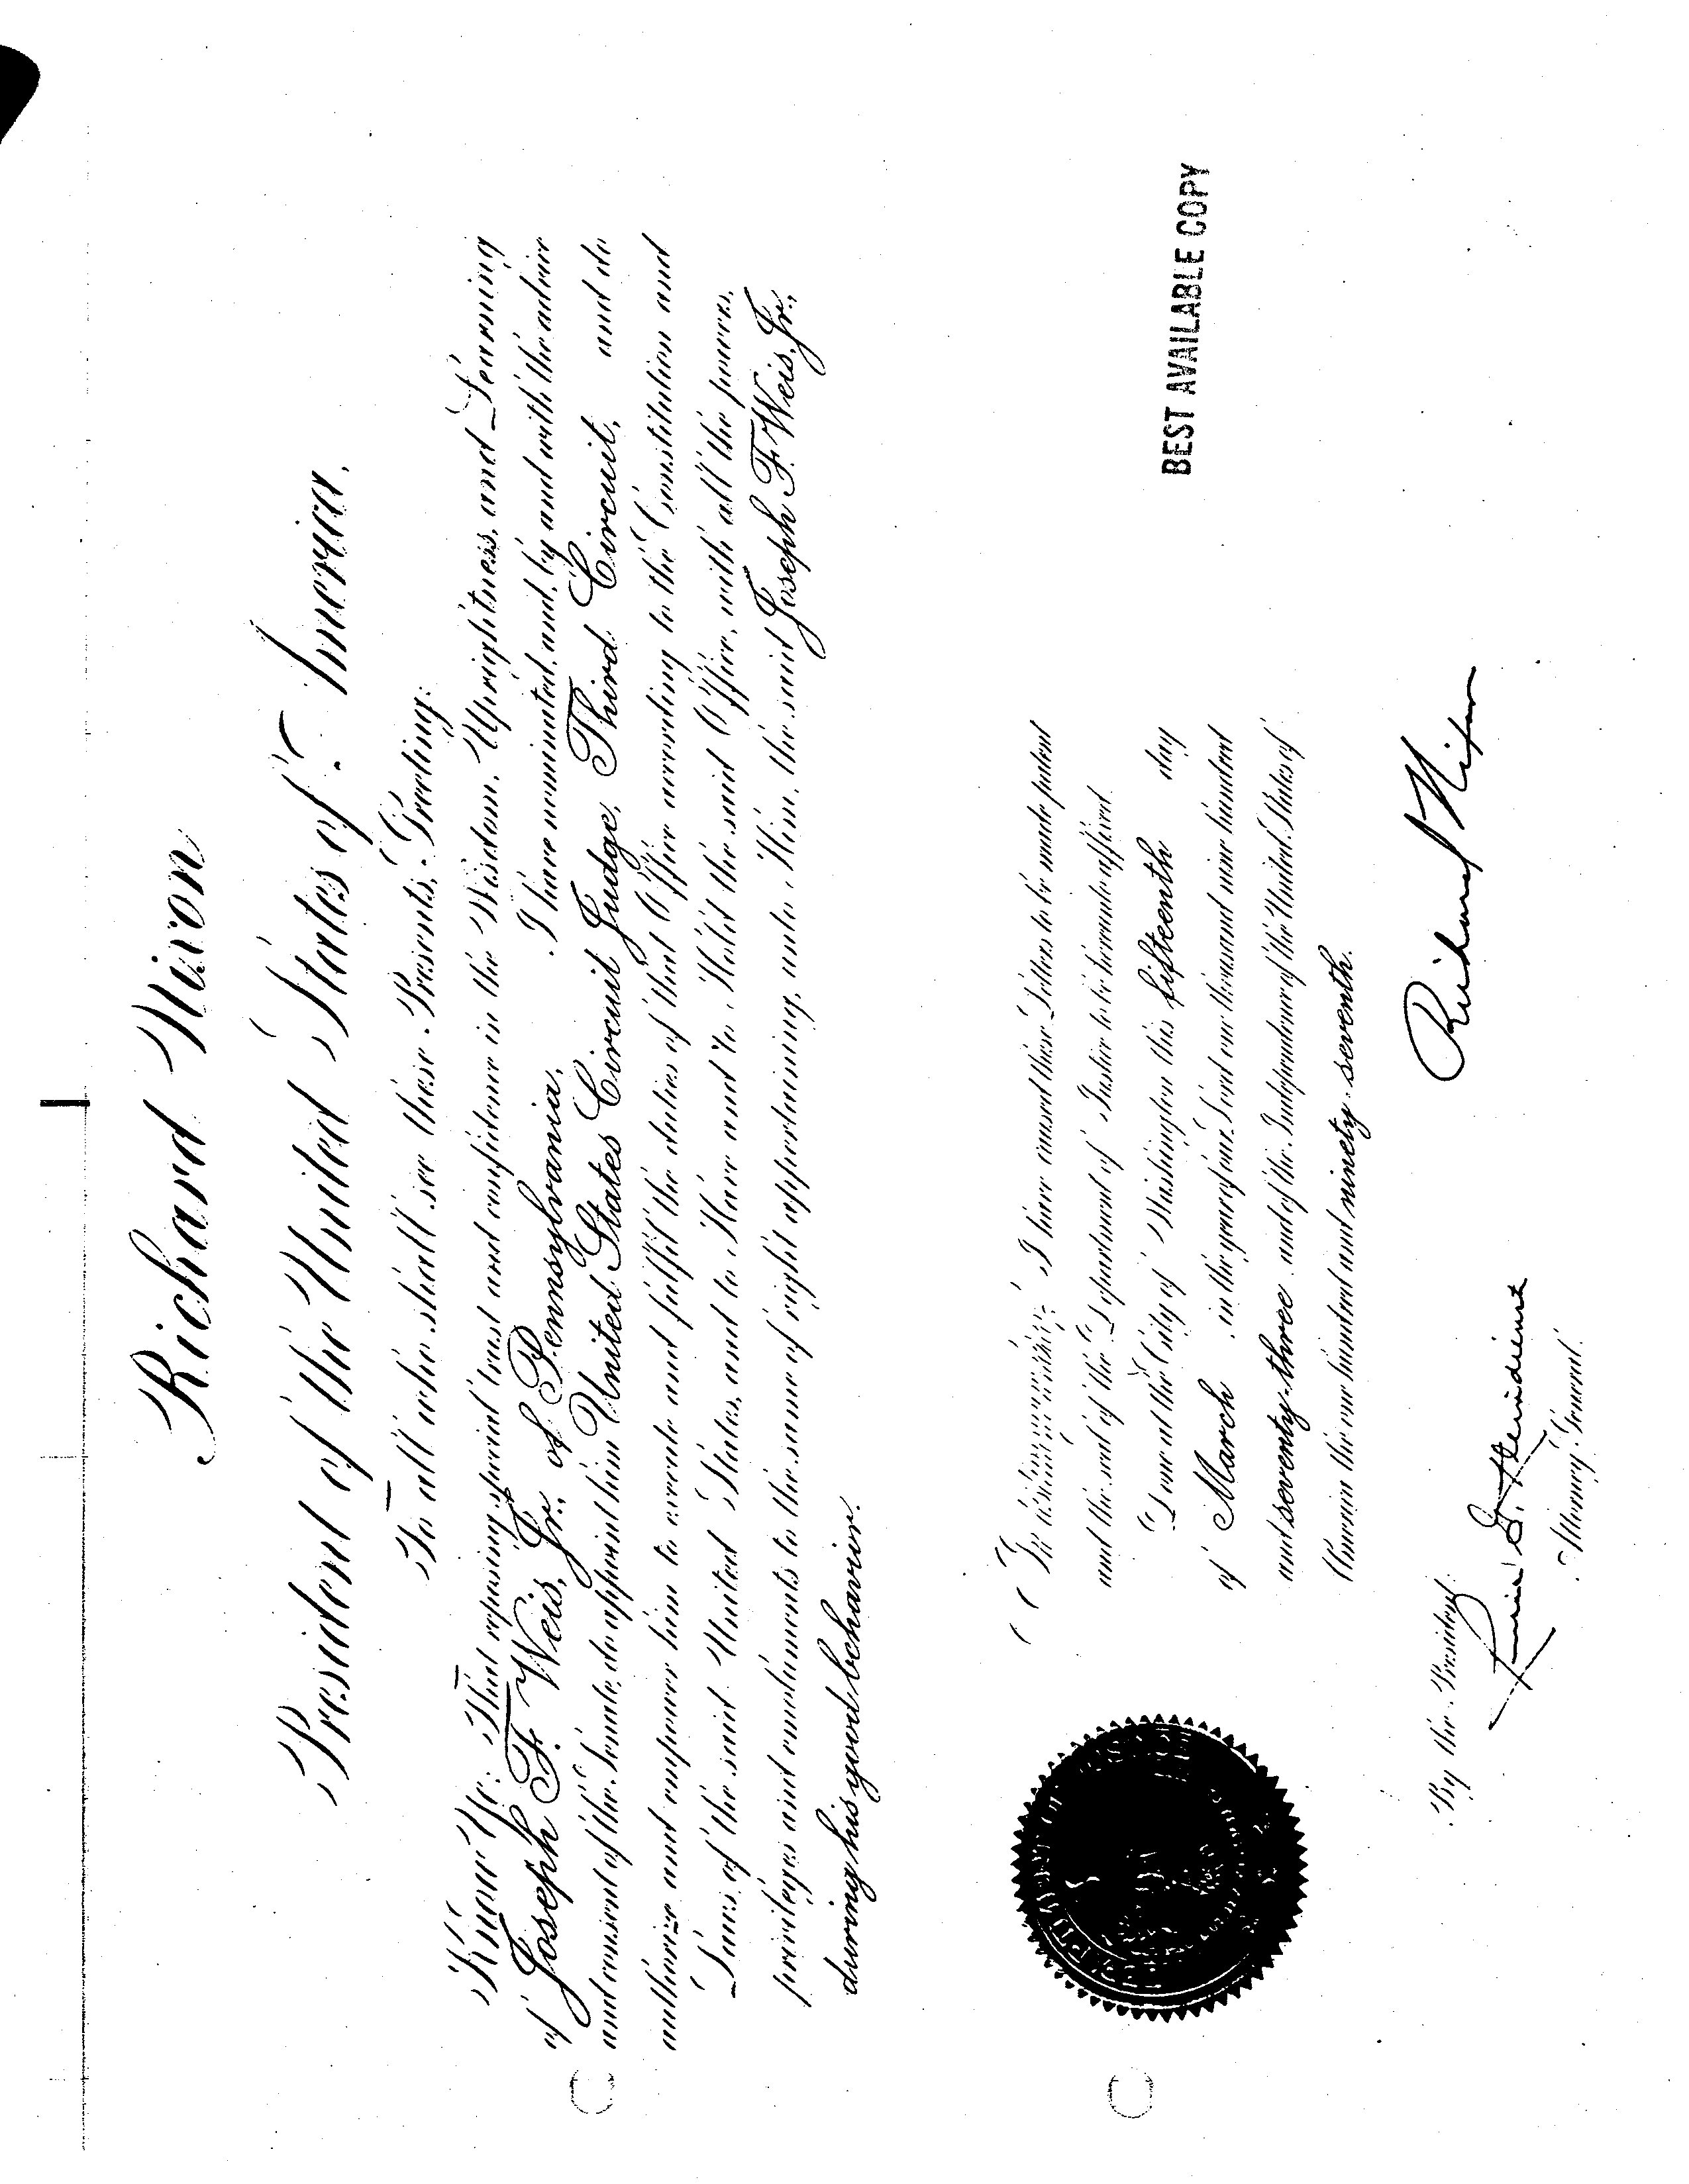 Richard Nixon
President of the United States of America.
To all who shall see these Presents, Greeting:
Know Ye: That reposing special trust and confidence in the Wisdom, Uprightness, and Learning
of Joseph F. Weis, Jr., of Pennsylvania, I have nominated, and, by and with the advice
and consent of the Senate, do appoint him United States Circuit Judge, Third Circuit, and do
authorize and empower him to execute and fulfil the duties of that Office according to the Constitution and
Laws of the said United States, and to Have and to Hold the said Office, with all the powers,
privileges and emoluments to the same of right appertaining, unto Him, the said Joseph F. Weis, Jr.,
during his good behavior.
In testimony whereof, I have caused these Letters to be made patent
and the seal of the Department of Justice to be hereunto affixed.
Done at the City of Washington this fifteenth day
of March, in the year of our Lord one thousand nine hundred
and seventy-three and of the Independence of the United States of
America the one hundred and ninety-seventh.
BEST AVAILABLE COPY
Richard Nixon
By the President:
Richard G. Kleindienst
Attorney General.